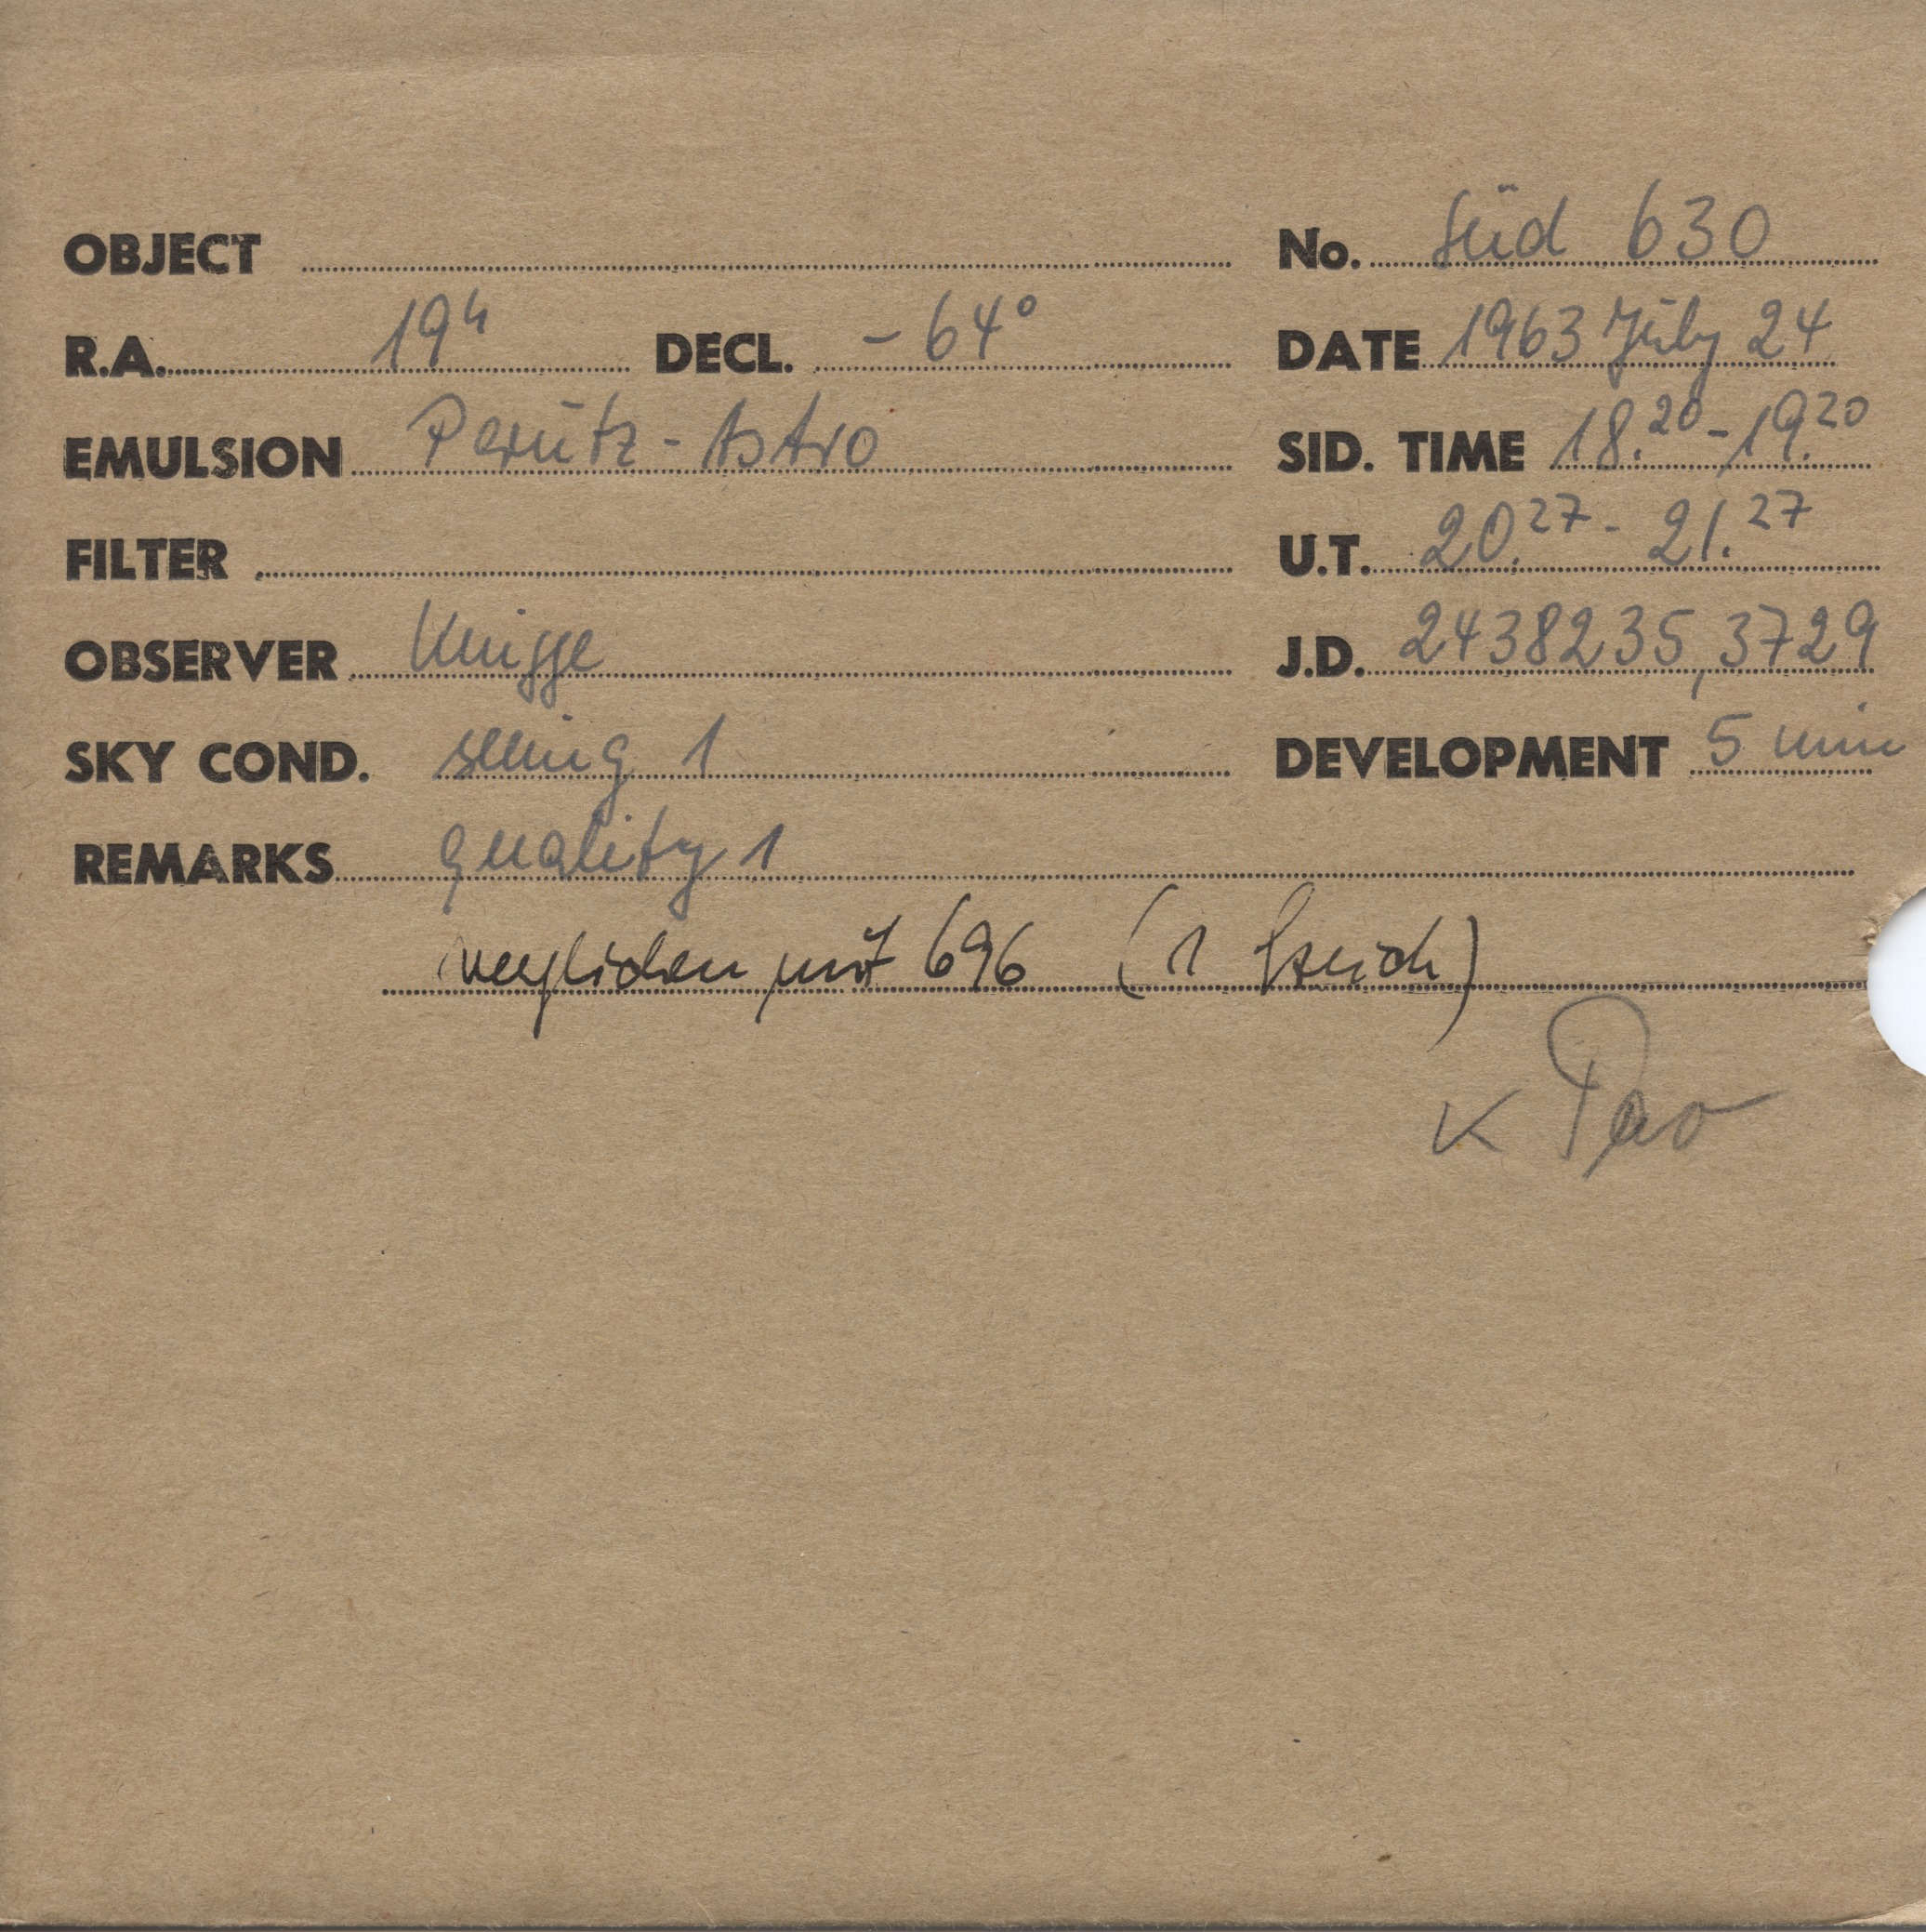 OBJECT No. Süd 630
R.A. 19h DECL. -64° DATE 1963 July 24
EMULSION Perutz-Astro SID. TIME 18.20-19.20
FILTER U.T. 20.27-21.27
OBSERVER Knigge J.D. 2438235,3729
SKY COND. seeing 1 DEVELOPMENT 5 min
REMARKS quality 1
verglichen mit 696 (1 Strich)
κ Pav